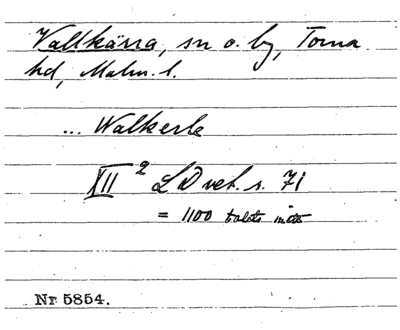 Vallkärra, sn o. by, Torna
hd, Malm. l.
... Walkerle
XII 2 LD vet. s. 71
= 1100 talets mitt
Nr 5854.